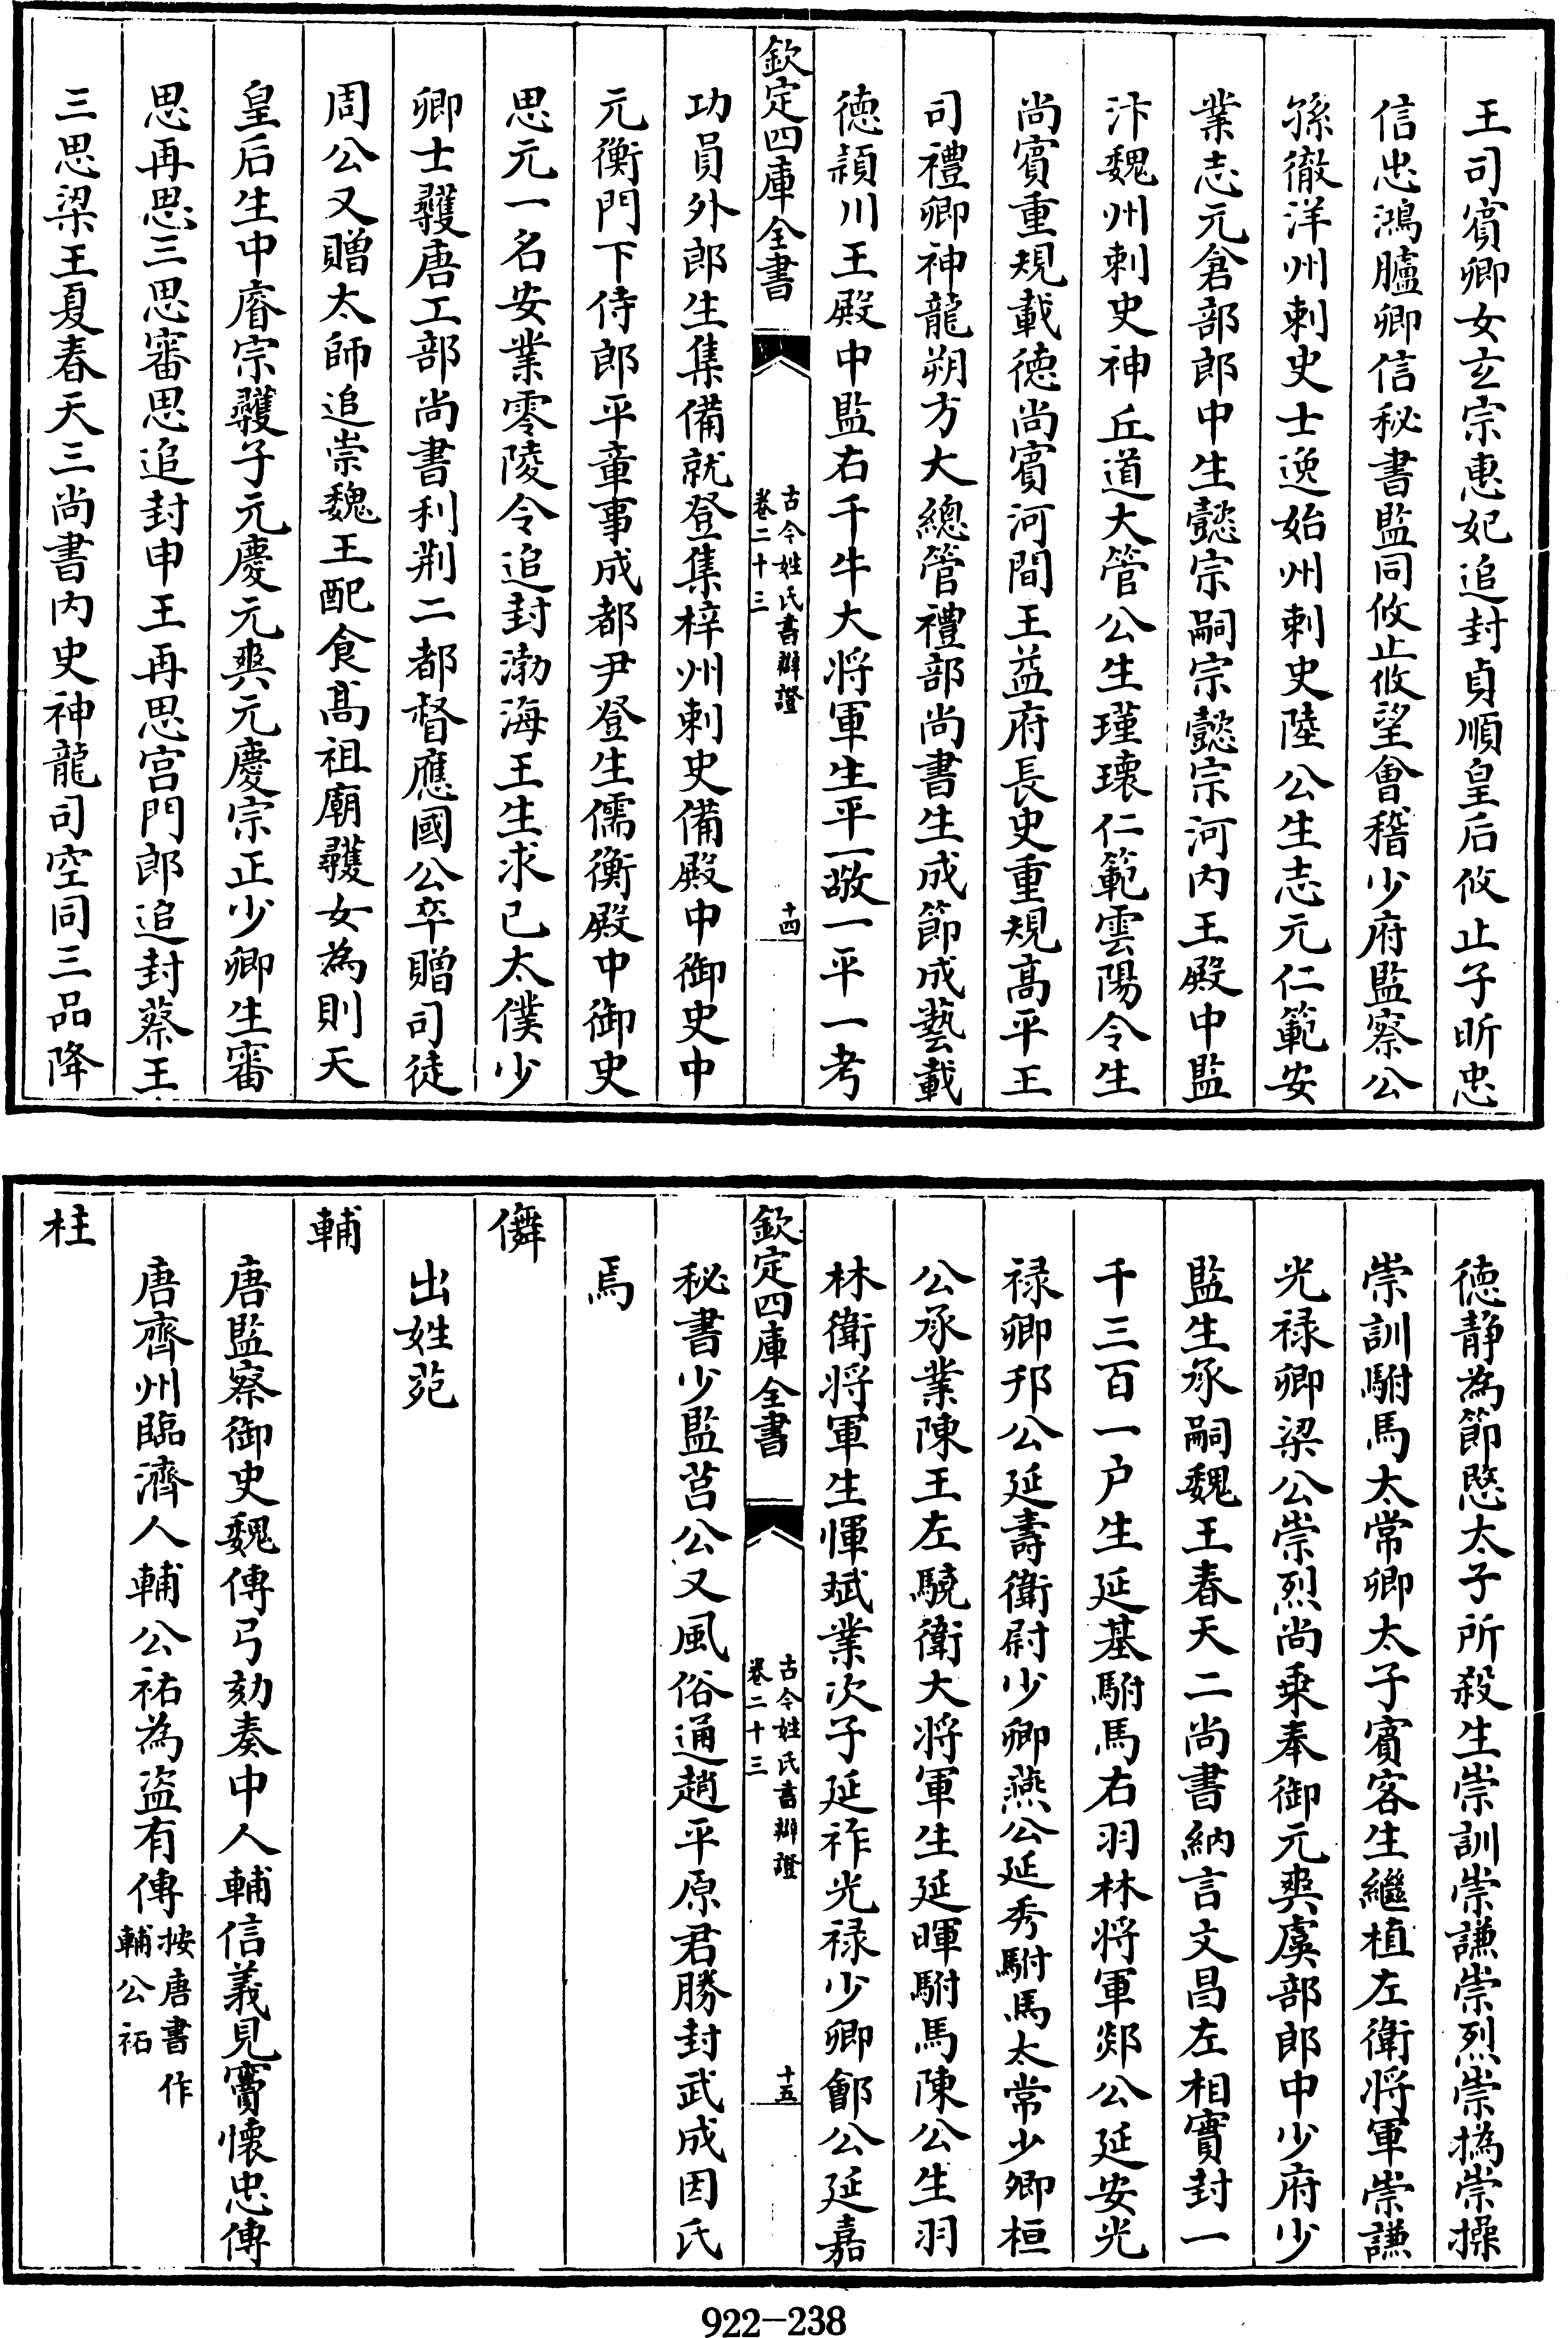 王司賓卿女玄宗惠妃追封貞順皇后攸止子昕忠
信忠鴻臚卿信秘書監同攸止攸望會稽少府監察公
孫徹洋州刺史士逸始州刺史陸公生志元仁範安
業志元倉部郎中生懿宗嗣宗懿宗河内王殿中監
汴魏州刺史神丘道大管公生瑾瓌仁範雲陽令生
尚賓重規載徳尚賓河間王益府長史重規髙平王
司禮卿神龍朔方大總管禮部尚書生成節成藝載
徳頴川王殿中監右千牛大將軍生平一敬一平一考
欽定四庫全書
古今姓氏書辯證
卷二十三
十四
功員外郎生集備就登集梓州刺史備殿中御史中
元衡門下侍郎平章事成都尹登生儒衡殿中御史
思元一名安業零陵令追封渤海王生求已太僕少
卿士彠唐工部尚書利荆二都督應國公卒贈司徒
周公又贈太師追崇魏王配食髙祖廟彠女為則天
皇后生中睿宗彠子元慶元爽元慶宗正少卿生審
思再思三思審思追封申王再思宫門郎追封蔡王
三思梁王夏春天三尚書内史神龍司空同三品降
徳静為節愍太子所殺生崇訓崇謙崇烈崇撝崇操
崇訓駙馬太常卿太子賓客生繼植左衛將軍崇謙
光禄卿梁公崇烈尚乗奉御元爽虞部郎中少府少
監生承嗣魏王春天二尚書納言文昌左相實封一
千三百一户生延基駙馬右羽林將軍郯公延安光
禄卿邦公延壽衛尉少卿燕公延秀駙馬太常少卿桓
公承業陳王左驍衛大將軍生延暉駙馬陳公生羽
林衛將軍生惲斌業次子延祚光禄少卿鄶公延嘉
欽定四庫全書
古今姓氏書辯證
卷二十三
十五
秘書少監莒公又風俗通趙平原君勝封武成因氏
焉
儛
出姓苑
輔
唐監察御史魏傳弓劾奏中人輔信義見竇懐忠傳
唐齊州臨濟人輔公祐為盗有傳按唐書作
輔公祏
柱
922-238